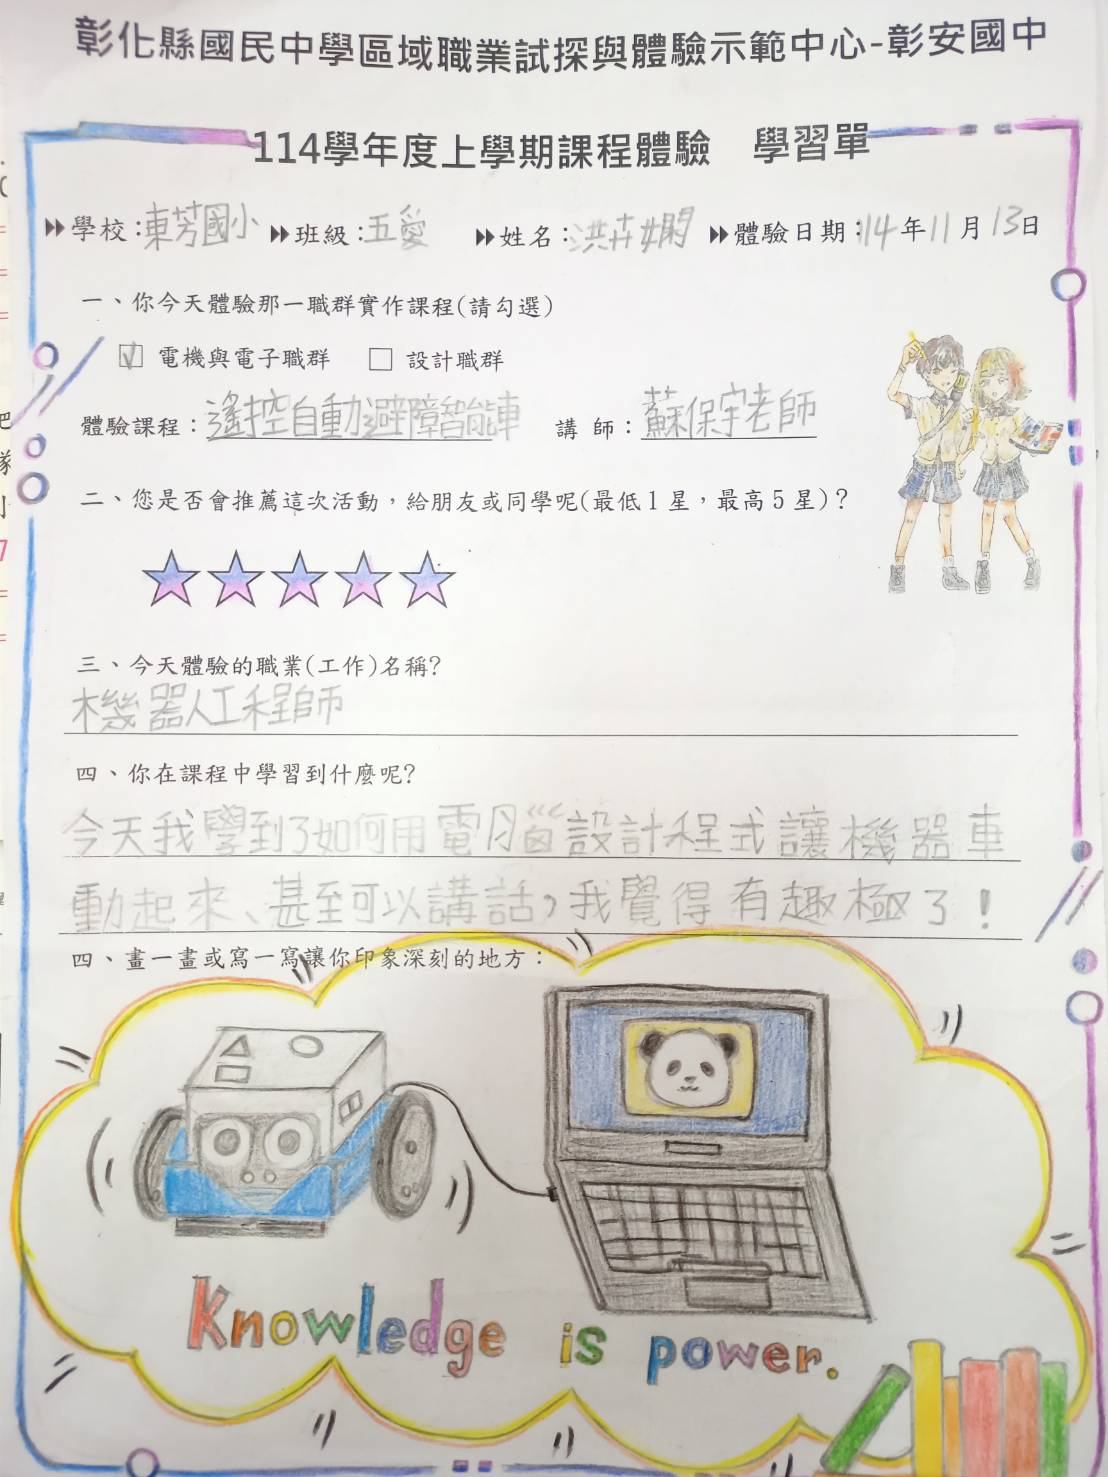 彰化縣國民中學區域職業試探與體驗示範中心-彰安國中
114學年度上學期課程體驗 學習單
學校:東芳國小 班級:五愛 姓名:洪卉嫻 體驗日期:114年11月13日
一、你今天體驗那一職群實作課程(請勾選)
☑ 電機與電子職群 □ 設計職群
體驗課程:遙控自動避障智能車 講 師:蘇保宇老師
二、您是否會推薦這次活動,給朋友或同學呢(最低1星,最高5星)?
三、今天體驗的職業(工作)名稱?
機器人工程師
四、你在課程中學習到什麼呢?
今天我學到了如何用電腦設計程式讓機器車
動起來、甚至可以講話,我覺得有趣極了!
四、畫一畫或寫一寫讓你印象深刻的地方:
Knowledge is power.